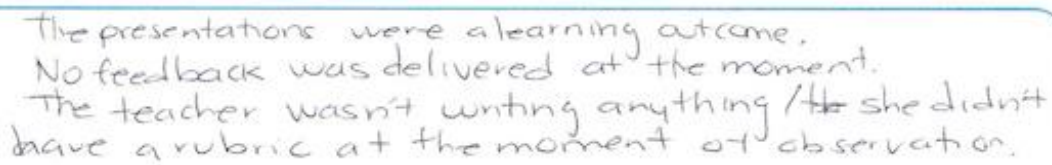 The presentations were a learning outcome.
No feedback was delivered at the moment.
The teacher wasn't writing anything / she didn't
have a rubric at the moment of observation.